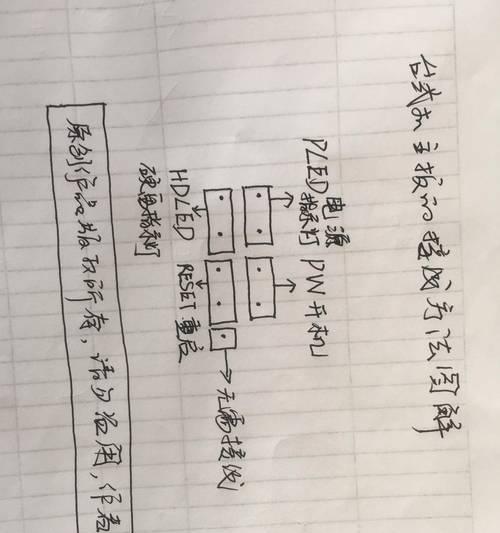 台式机主板的接线方法图解
PLED电源
指示灯
PW开机
HDLED
硬盘指示灯
RESET重启
无需接线
原创作品版权所有,请勿盗用,作者